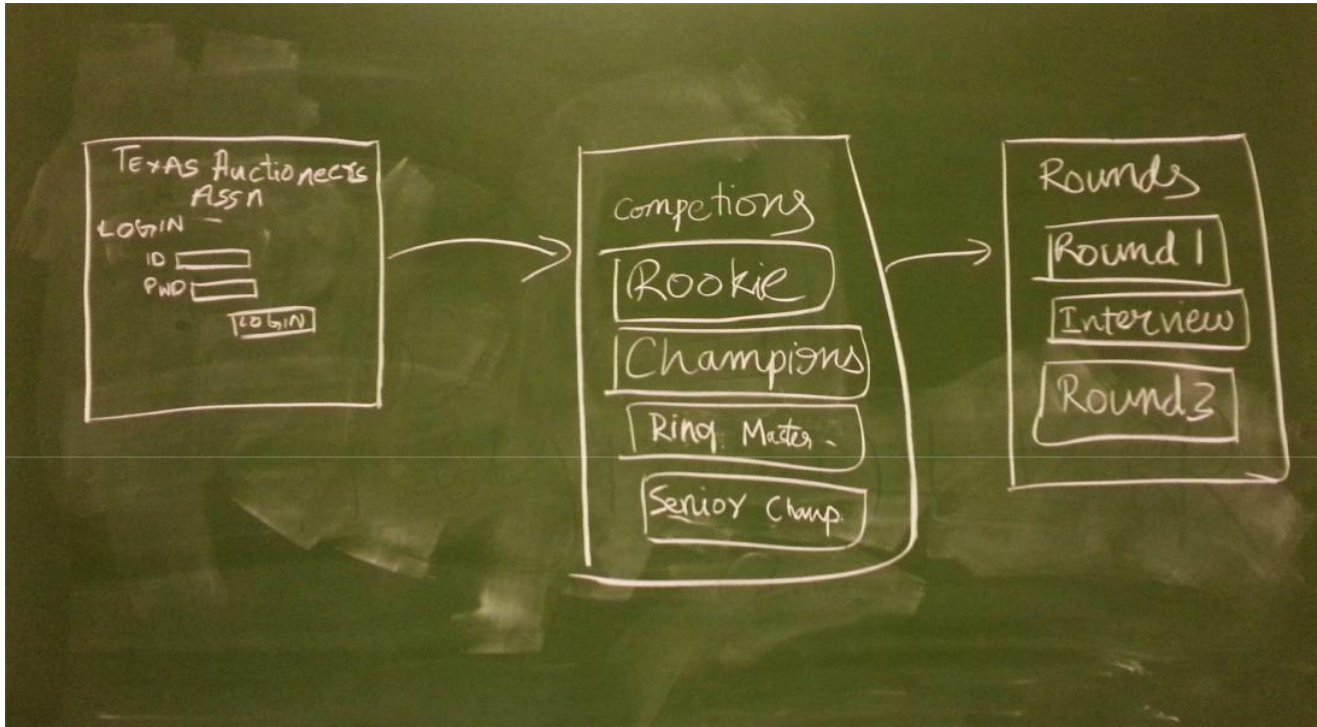 Texas Auctioneers
Assn
LOGIN
ID
PWD
LOGIN
Competions
Rookie
Champions
Ring Master
Senior Champ.
Rounds
Round 1
Interview
Round 3